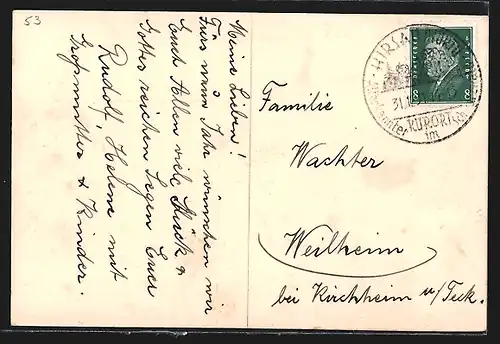 53
Meine Lieben!
Fürs neue Jahr wünschen wir
Euch Allen viele Glück &
Gottes reichen Segen Eure
Rudolf, Helene mit
Großmutter & Kinder.
HIRSAU
31.
KURORT
im
DEUTSCHES REICH
8 8
Familie
Wachter
Weilheim
bei Kirchheim u/Teck.